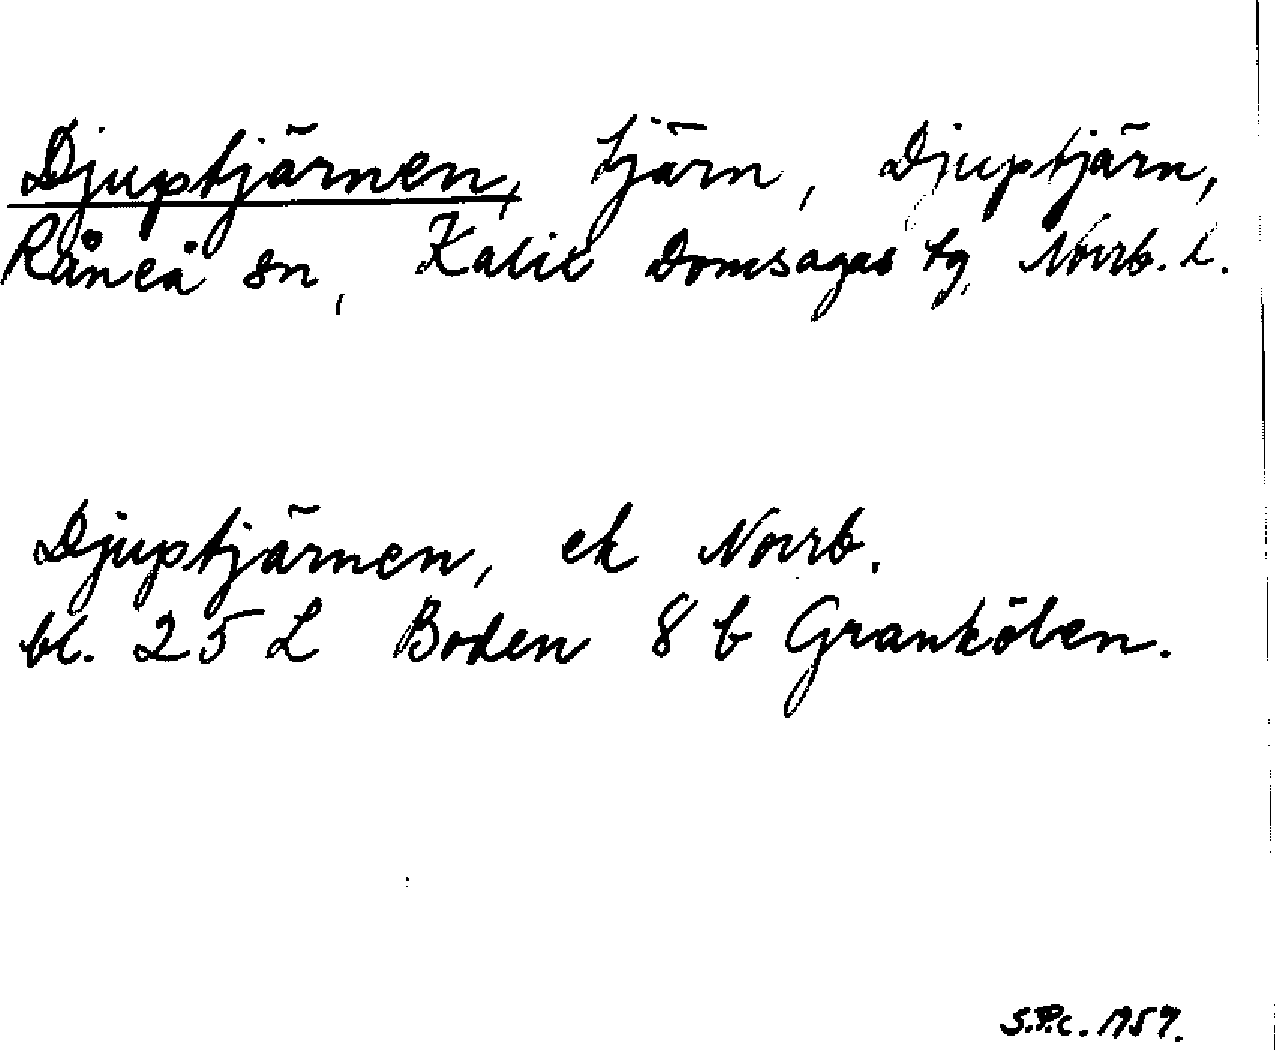 Djuptjärnen, tjärn, Djuptjärn,
Råneå sn, Kalix Domsagas tg, Norrb. l.
Djuptjärnen, ek Norrb.
bl. 25 L Boden 8 b Grankölen.
S.P.c. 1959.